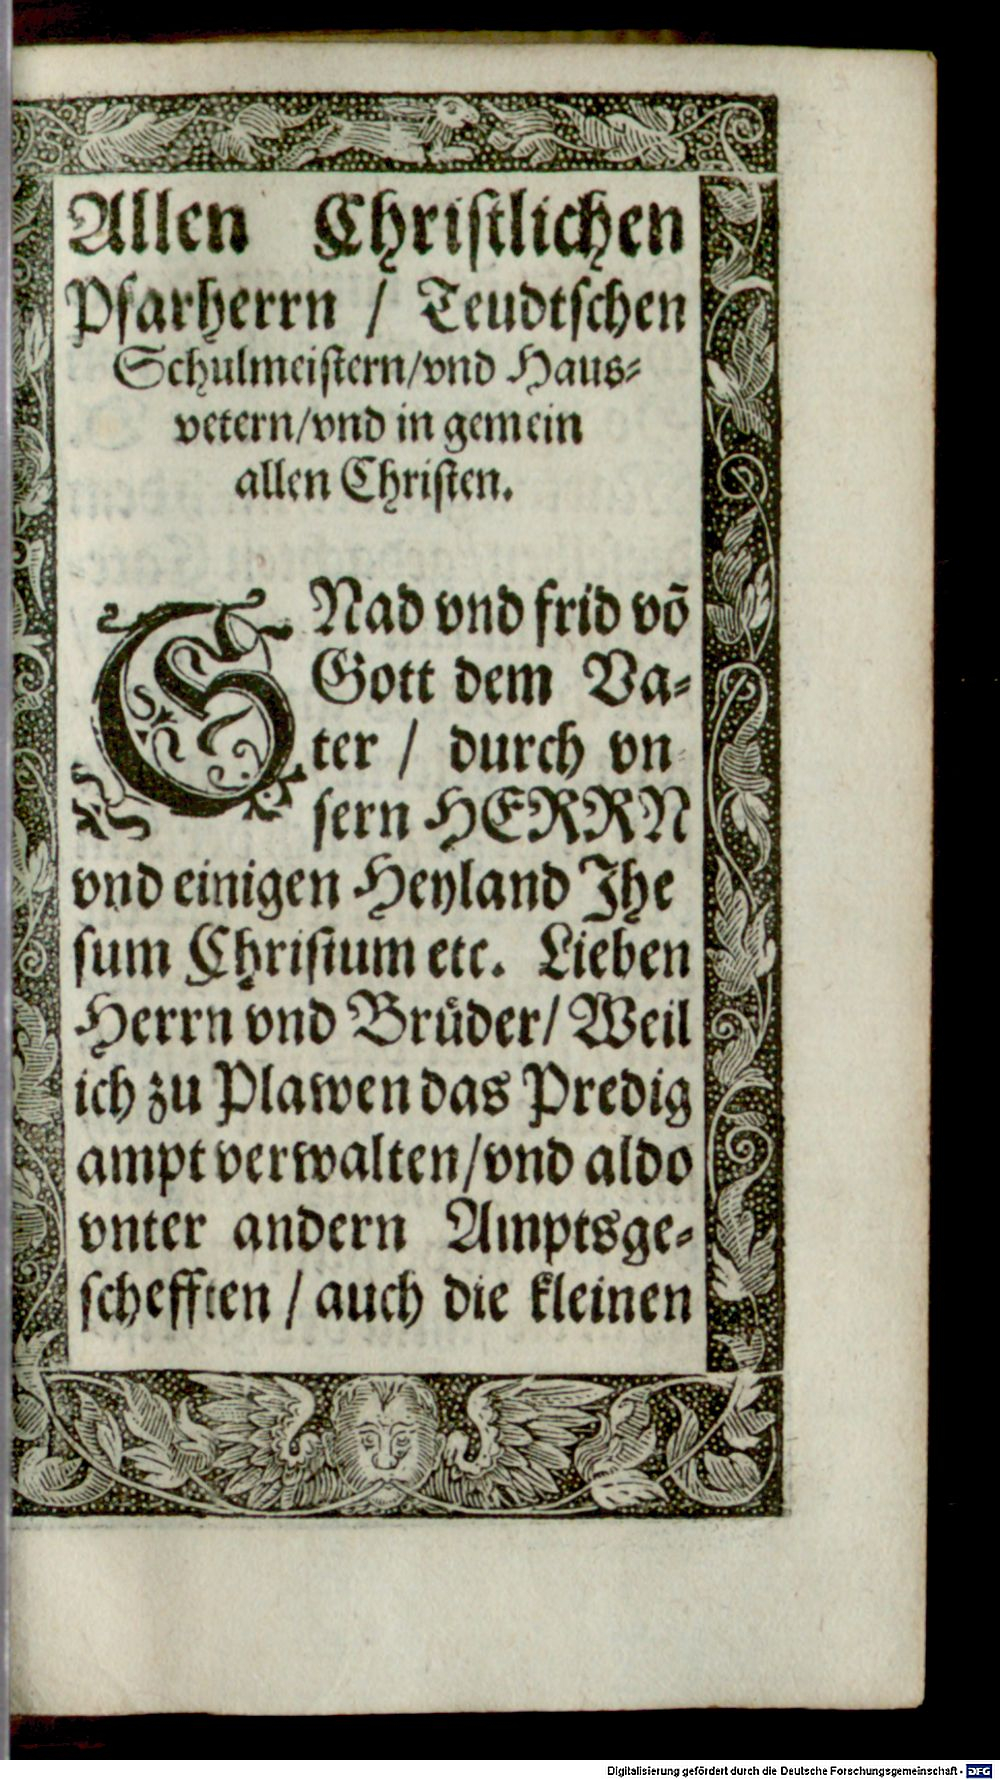 Allen Christlichen
Pfarherrn / Teudtschen
Schulmeistern/vnd Haus⸗
vetern/vnd in gemein
allen Christen.
GNad vnd frid võ
Gott dem Va⸗
ter / durch vn
sern HERRN
vnd einigen Heyland Jhe
sum Christum etc. Lieben
Herrn vnd Brüder/ Weil
ich zu Plawen das Predig
ampt verwalten/vnd aldo
vnter andern Amptsge⸗
schefften / auch die kleinen
Digitalisierung gefördert durch die Deutsche Forschungsgemeinschaft - DFG